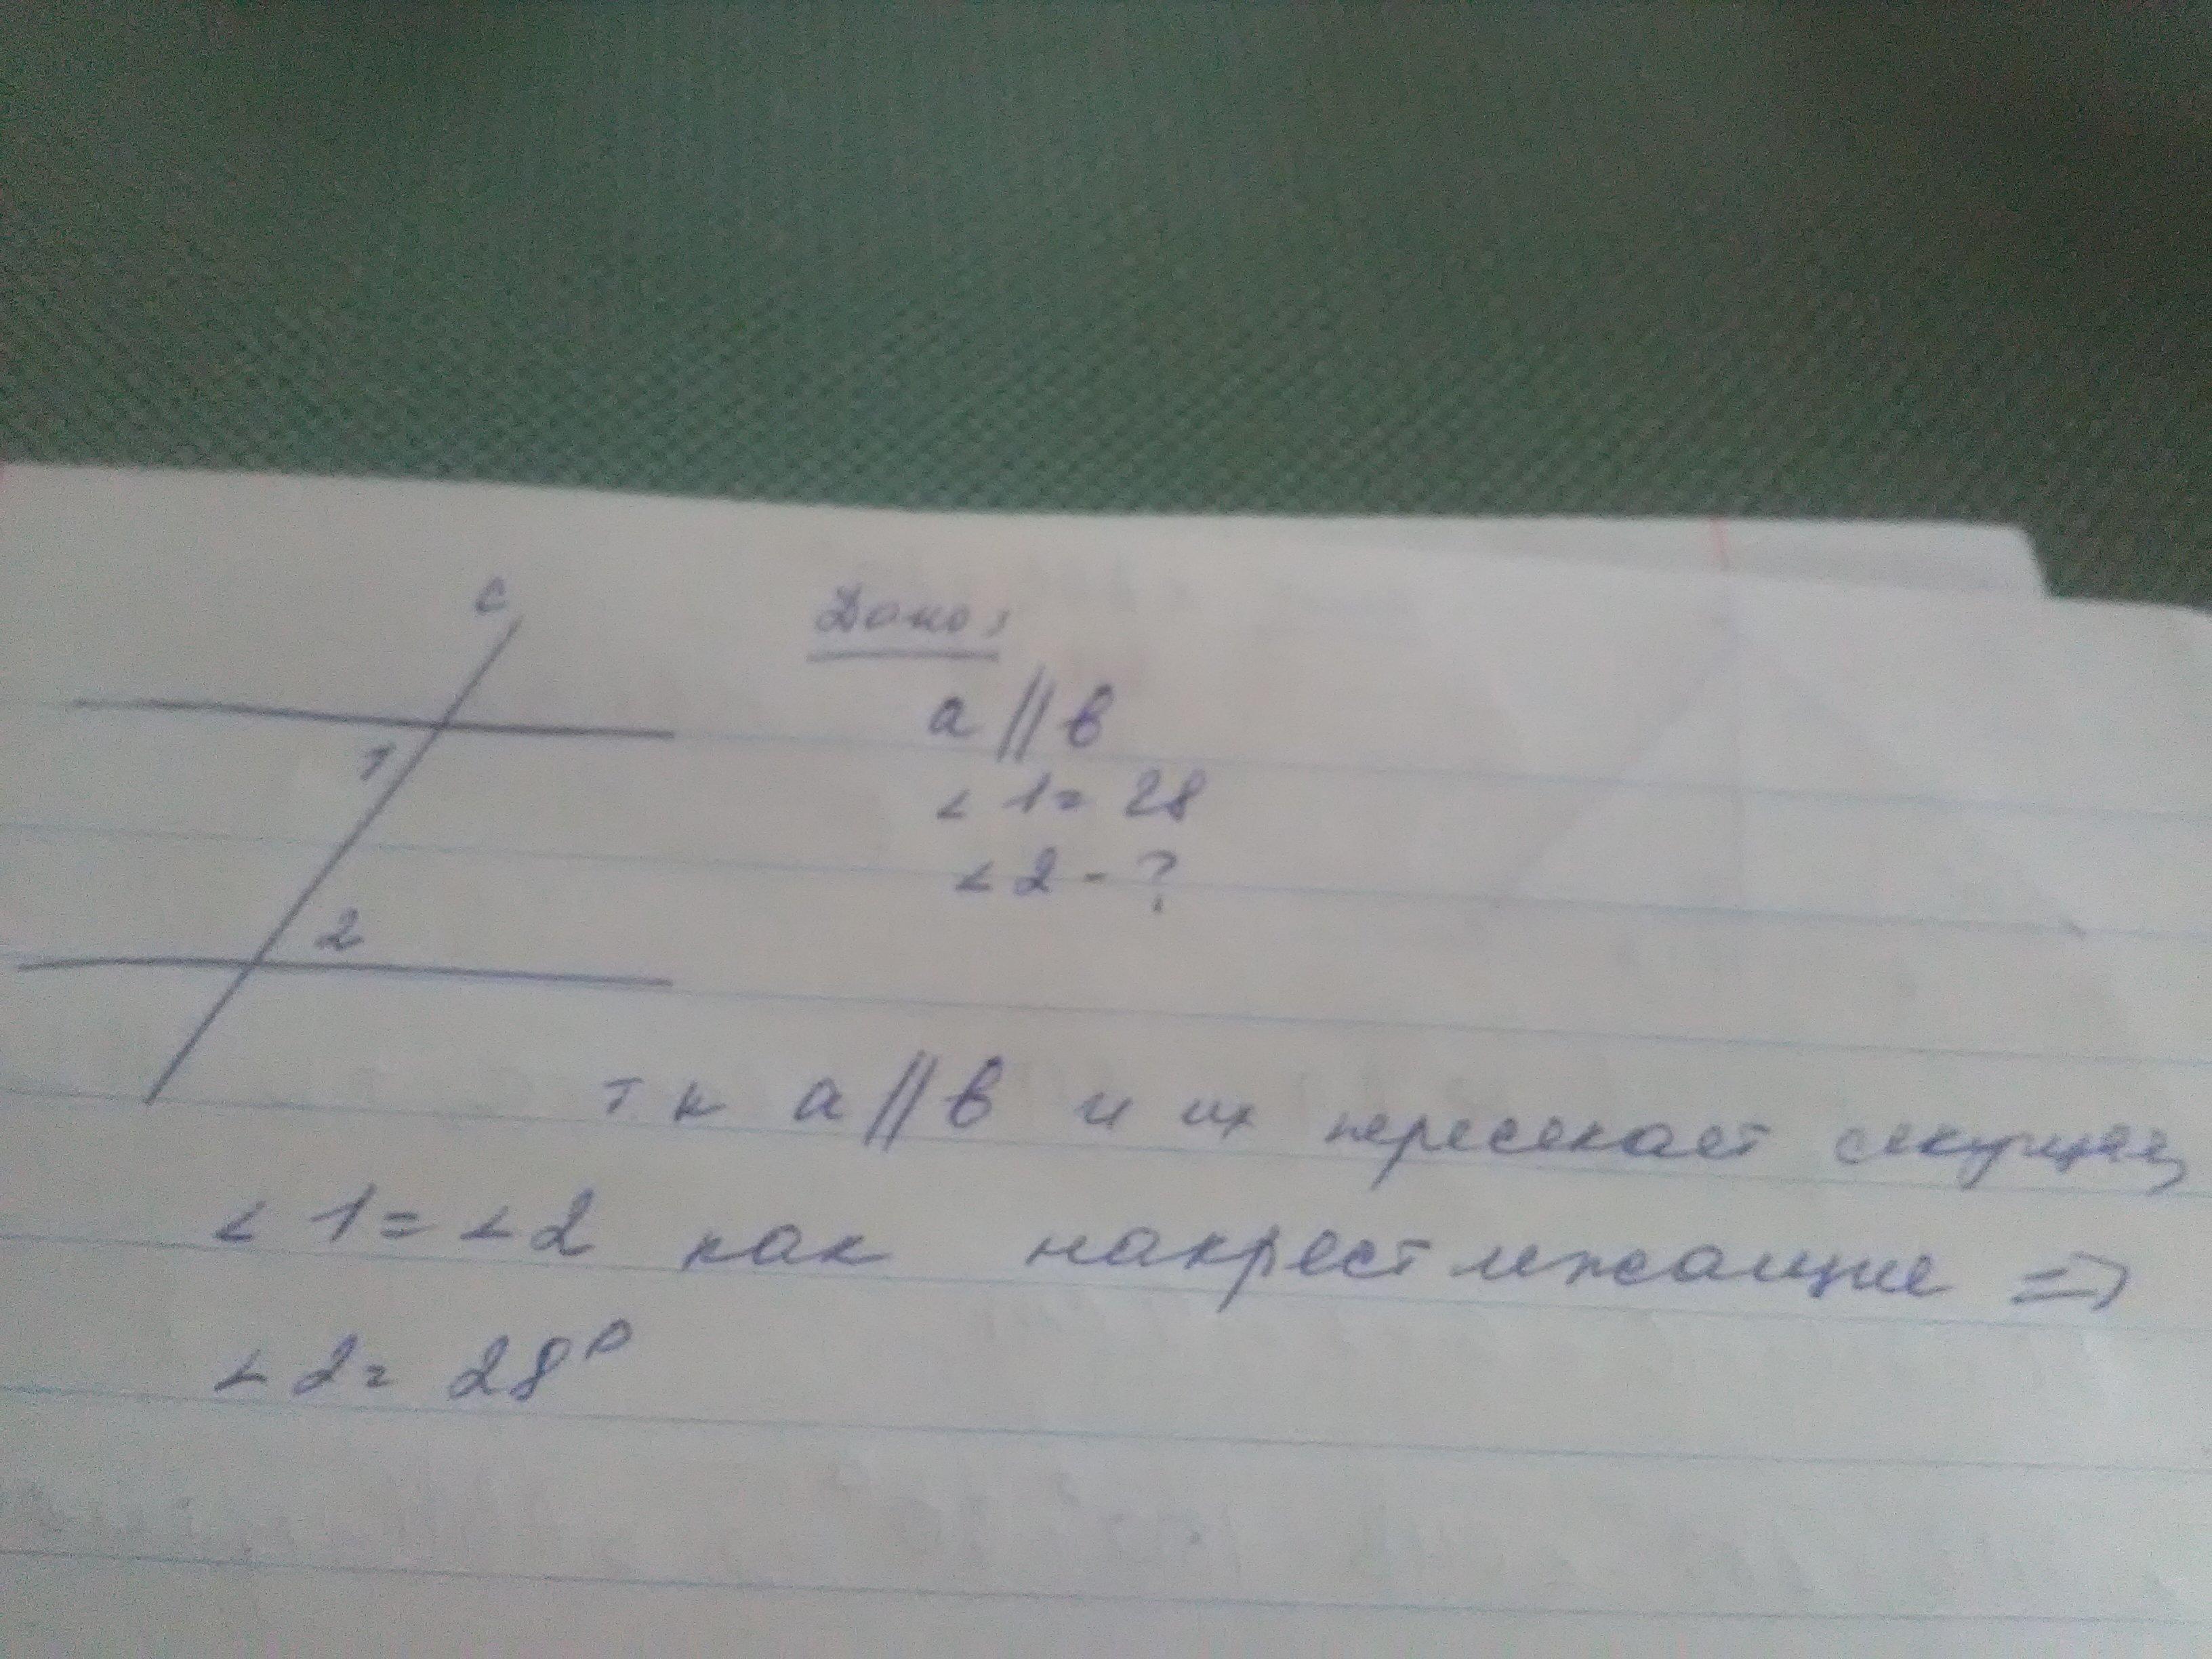 c
Дано:
a || в
< 1 = 28
< 2 - ?
1
2
т к a || в и их пересекает секущая,
< 1 = < 2 как накрест лежащие =>
< 2 = 28°